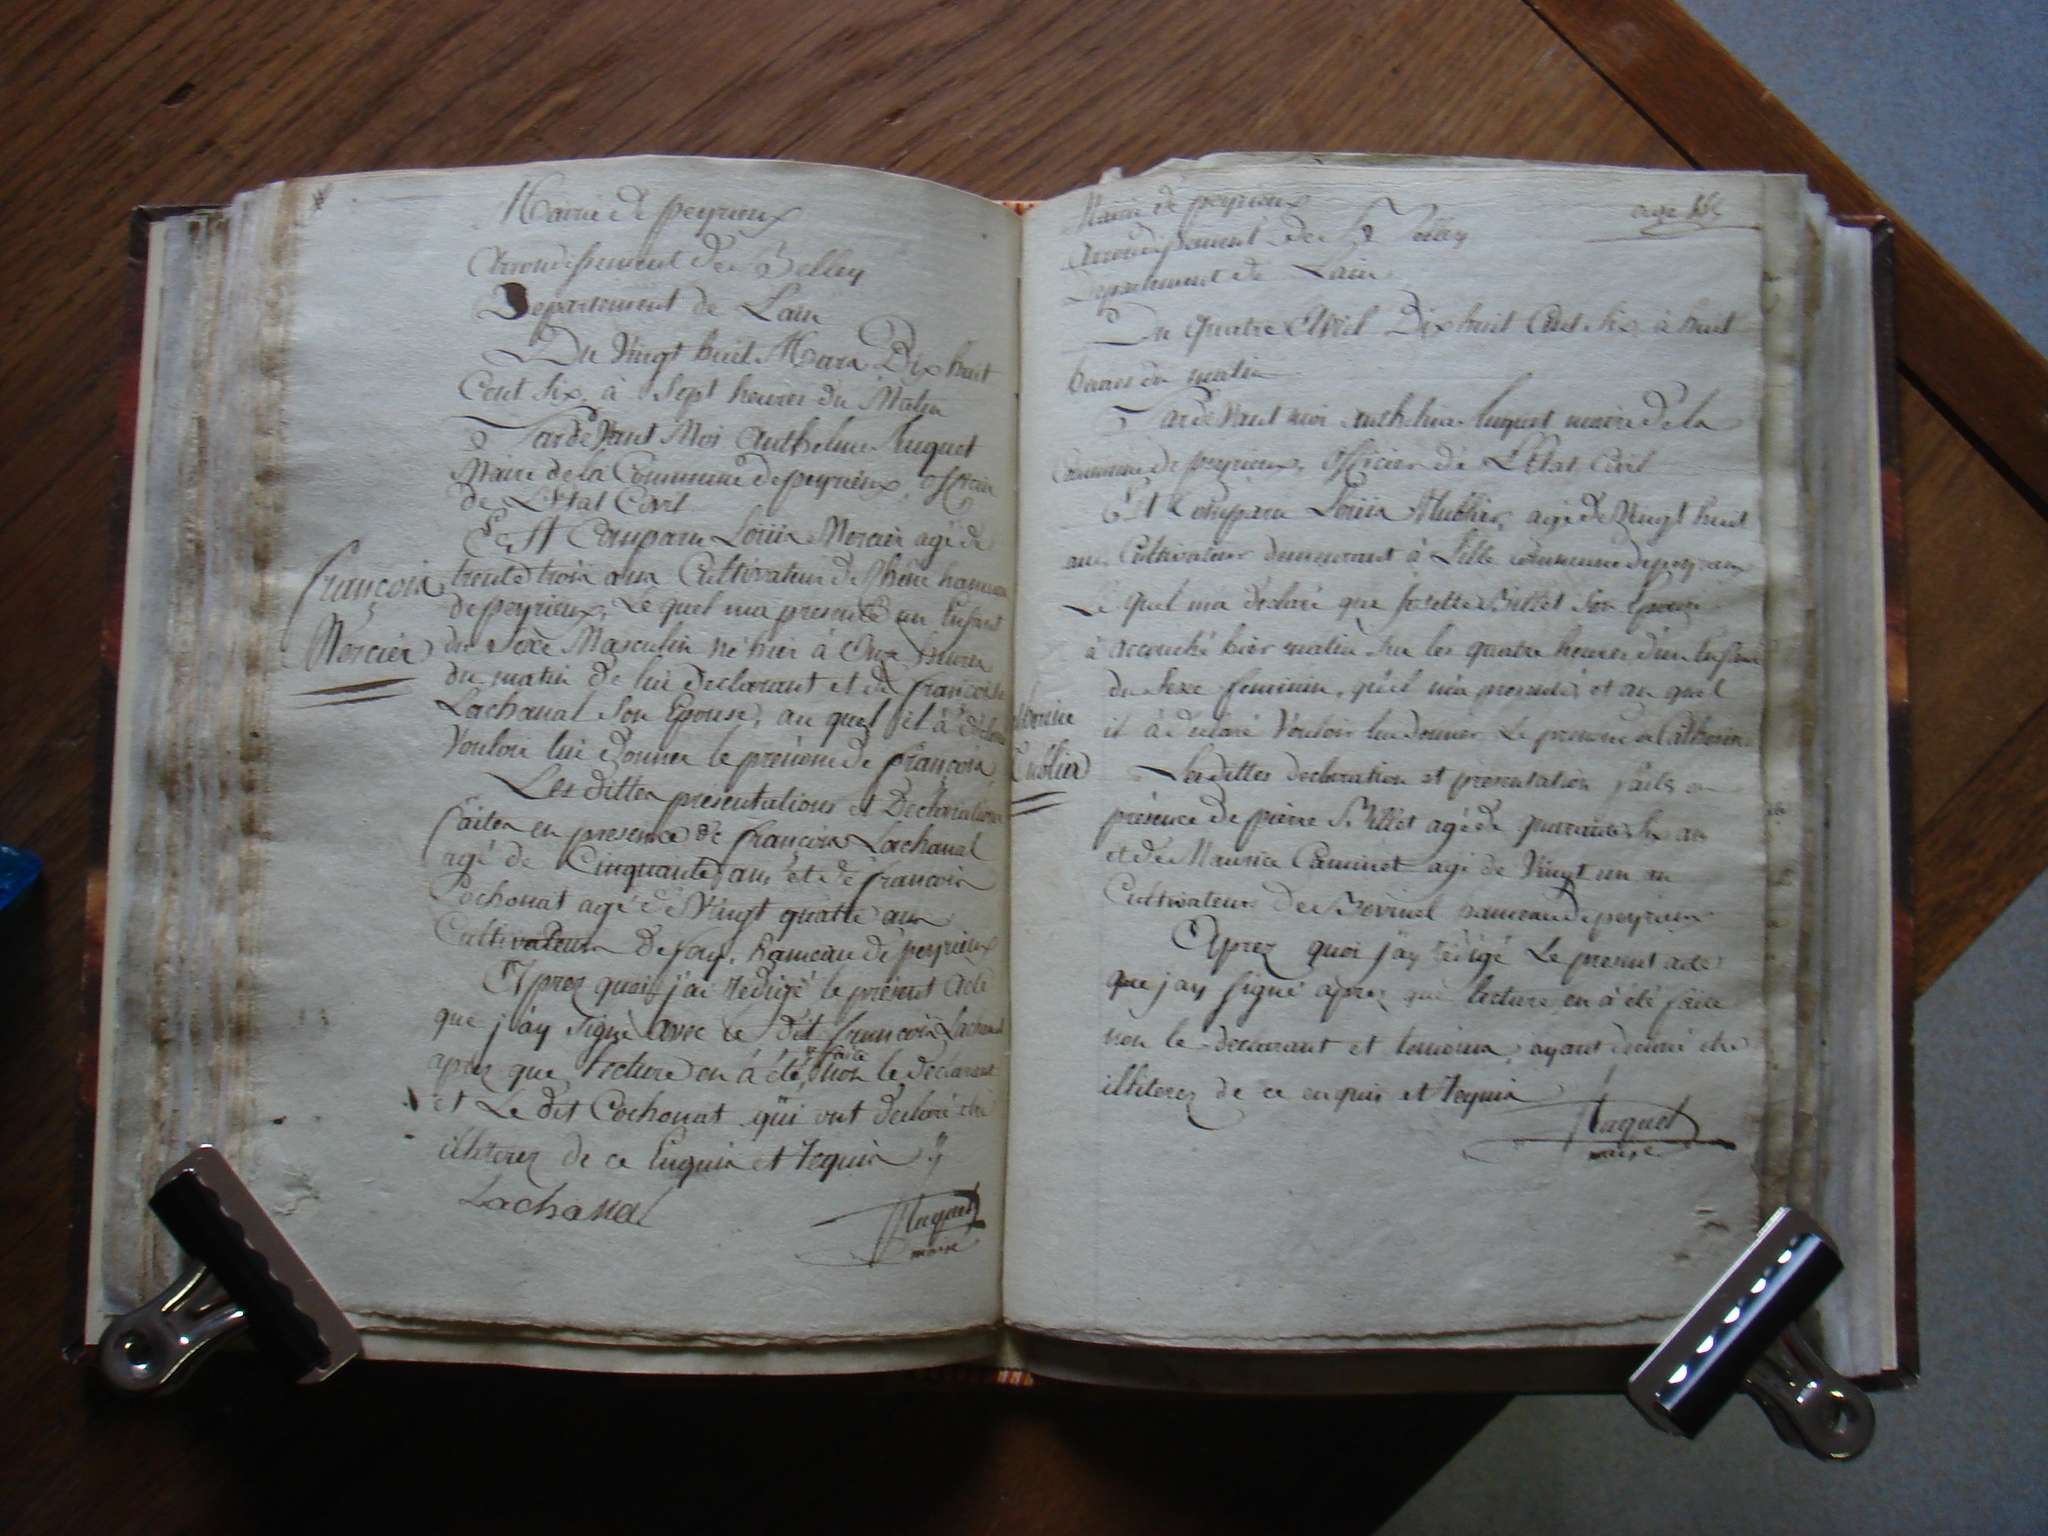 Mairie de peyrieux
Arrondissement de Belley
Departement de Lain
Du Vingt huit Mars Dix huit
Cent Six, à Sept heures du Matin
Pardevant Moi Anthelme huguet
Maire de la Commune de peyrieux, officier
de L'Etat Civil
Est Comparu Louis Mercier agé de
trente trois ans Cultivateur de hameau
de peyrieux, Le quel ma presenté un Enfant
du Sexe Masculin né hier à Onze heures
du matin de lui declarant et de françoise
Lachanal Son Epouse, au quel il à déclaré
Vouloir lui Donner le prénom de françois
françois
Mercier
Les dittes presentations et Declarations
faites en presence de francois Lachanal
agé de Cinquante ans et de francois
Cochonat agé de Vingt quatre ans
Cultivateurs de fay, hameau de peyrieux
Aprez quoi j'ai rédigé le présent acte
que j'ay Signé avec le dit françois Lachanal
aprez que Lecture en à été faite non le declarant
et Le dit Cochonat qui ont declaré etre
illiterez de ce Enquis et requis
Lachanal
huguet
maire
Mairie de peyrieux
Arrondissement de Belley
Departement de Lain
Du quatre Avril Dix huit Cent Six à huit
heures du matin
Pardevant moi anthelme huguet maire de la
Commune de peyrieux, officier de L'Etat Civil
Est Comparu Louis agé de Vingt huit
ans, Cultivateur demeurant à commune de peyrieux
Le quel ma déclaré que josette Billet Son Epouse
à accouché hier matin Sur les quatre heures d'un Enfant
du Sexe feminin, qu'il m'a presenté et au quel
il à déclaré Vouloir lui donner Le prenom de Catherine
Les dittes declaration et présentation faites en
présence de pierre Billet agé de quarante Six ans
et de Maurice agé de Vingt un an
Cultivateurs de hameau de peyrieux
Aprez quoi j'ay rédigé Le present acte
que j'ay Signé aprez que lecture en à été faite
non le declarant et temoins, ayant declaré etre
illiterez de ce enquis et requis
huguet
maire